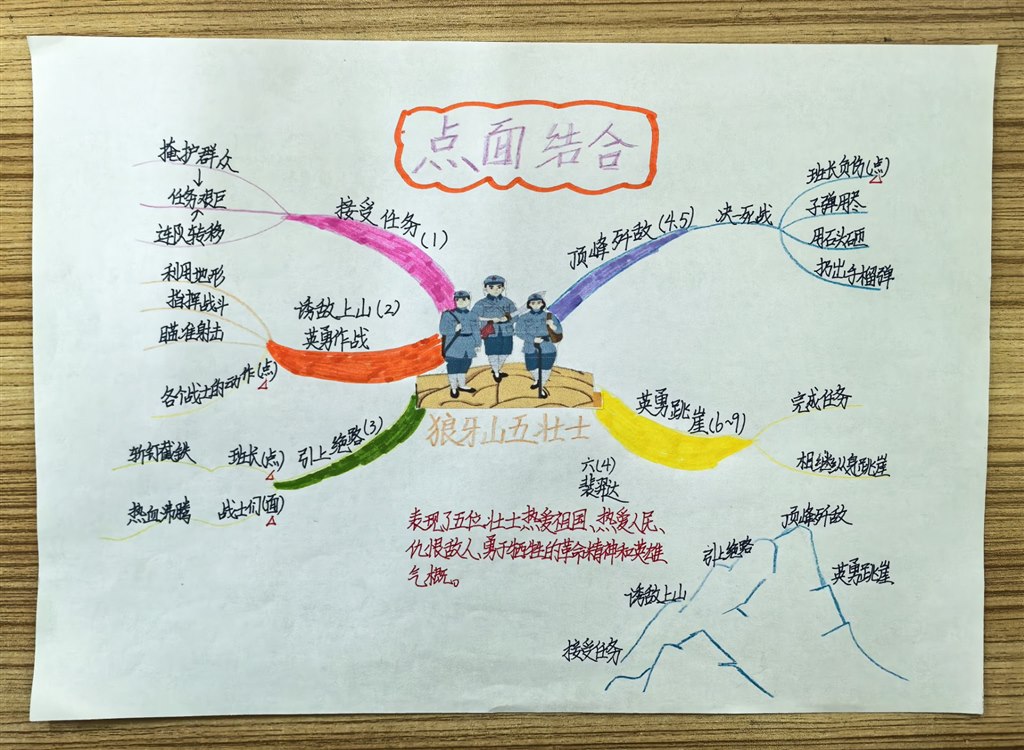 点面结合
掩护群众
↓
任务艰巨
↑
连队转移
接受任务(1)
利用地形
指挥战斗
瞄准射击
各个战士的动作(点)
诱敌上山(2)
英勇作战
斩钉截铁
班长(点)
热血沸腾
战士们(面)
引上绝路(3)
顶峰歼敌(4.5)
决死战
班长负伤(点)
子弹用尽
用石头砸
扔出手榴弹
英勇跳崖(6~9)
完成任务
相继纵身跳崖
狼牙山五壮士
六(4)
表现了五位壮士热爱祖国、热爱人民、
仇恨敌人、勇于牺牲的革命精神和英雄
气概。
顶峰歼敌
引上绝路
英勇跳崖
诱敌上山
接受任务